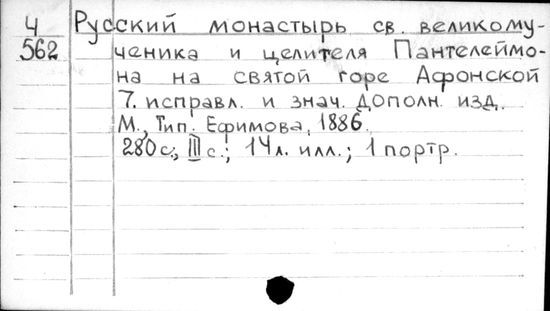 4
562
Русский монастырь св. великому-
ченика и целителя Пантелеймо-
на на святой горе Афонской
7. исправл. и знач. дополн. изд.
М., Тип. Ефимова, 1886.
280 с., III с.; 14 л. илл.; 1 портр.